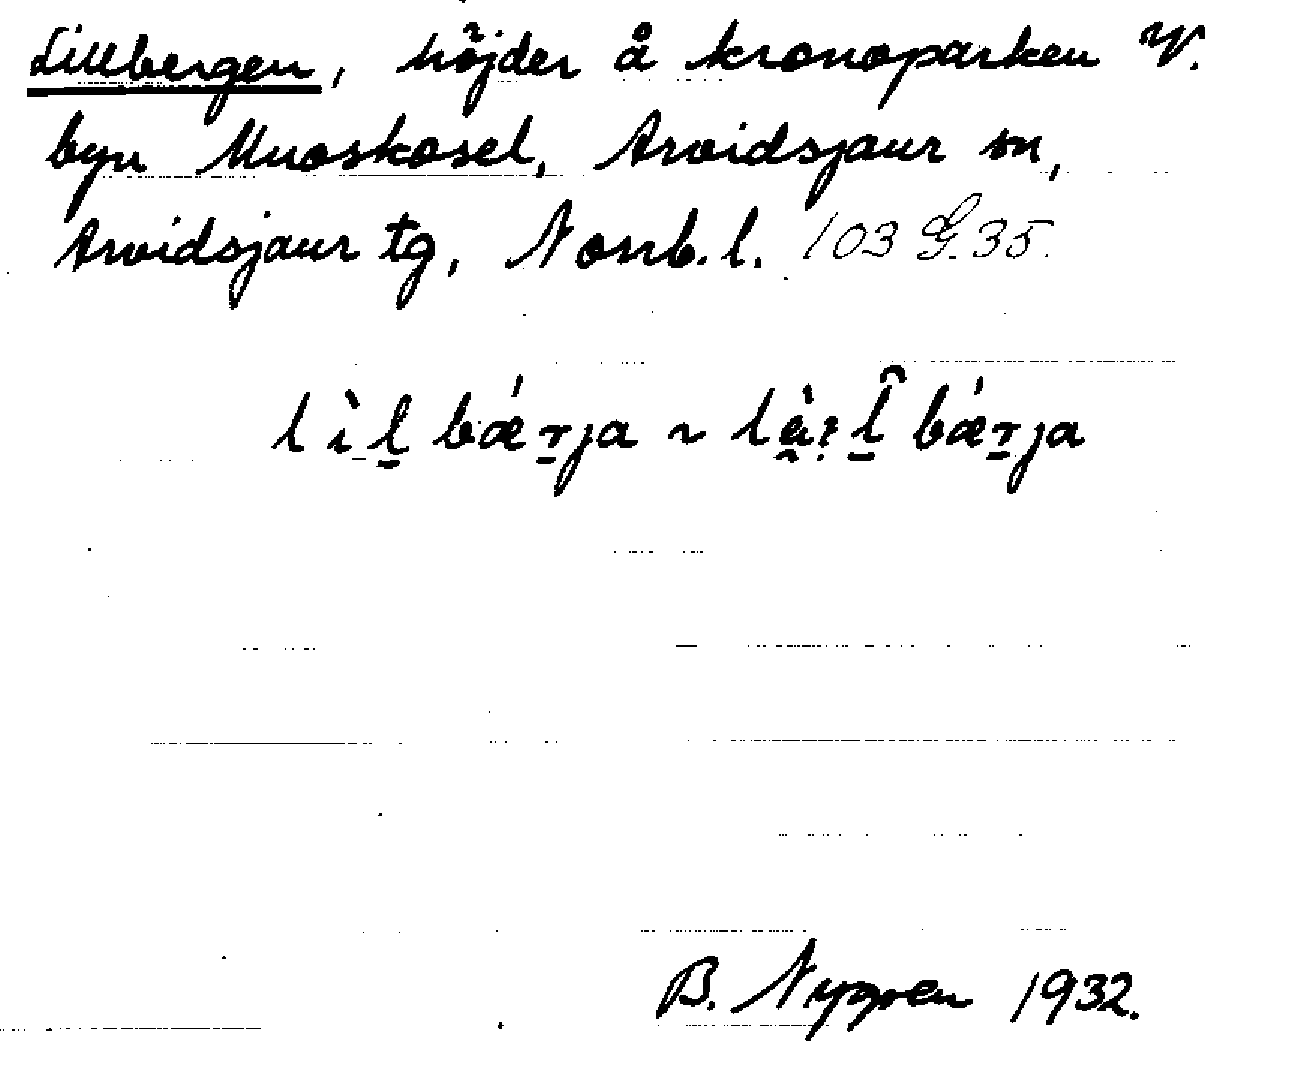 Lillbergen, höjder å kronoparken V.
byn Muoskosel, Arvidsjaur sn,
Arvidsjaur tg, Norrb. l. 103 G. 35.
lìl̠ bǽr̠ja ~ bǽr̠ja
B. Nygren 1932.